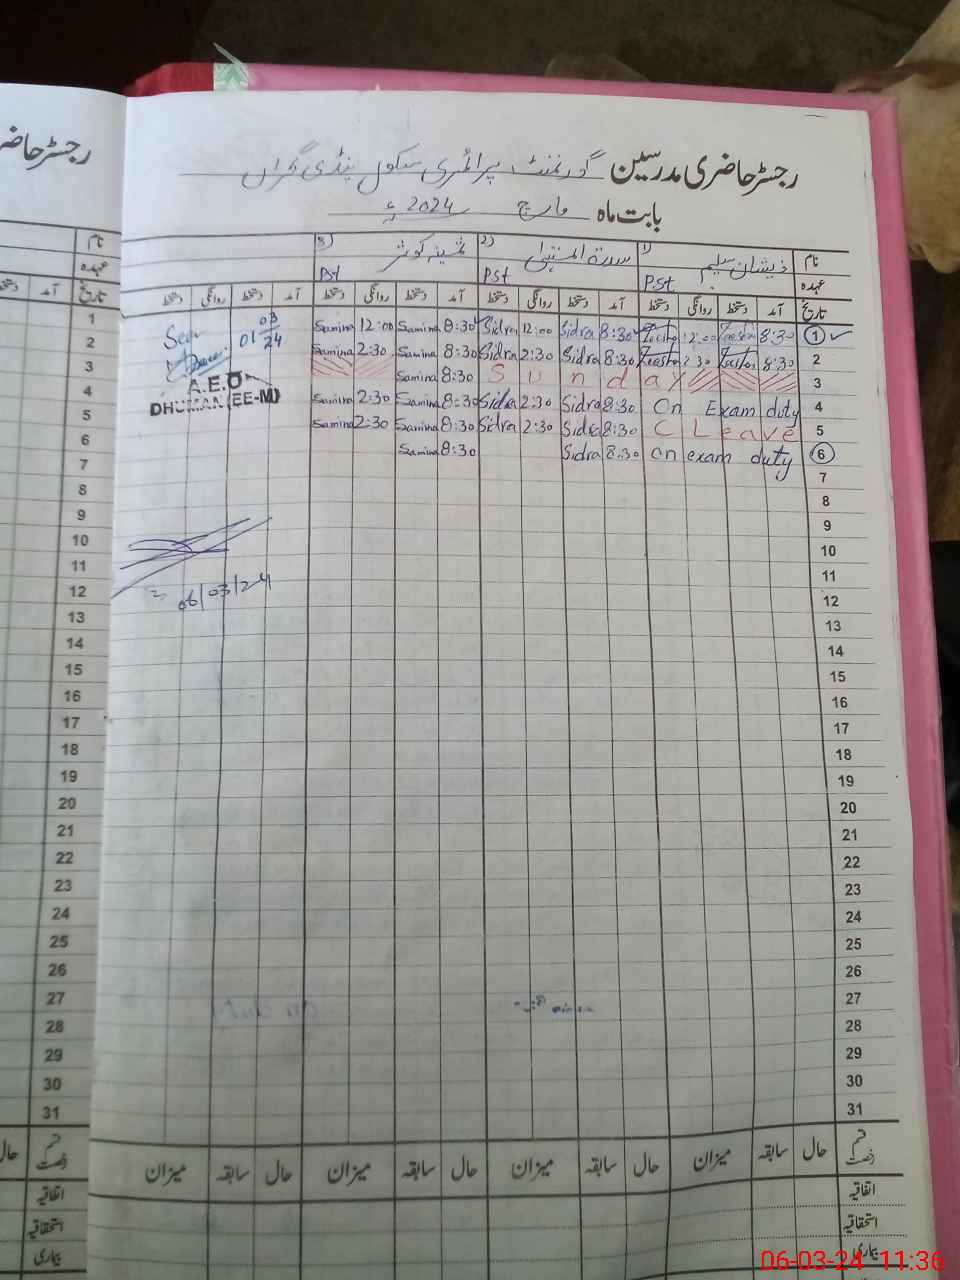 رجسٹر حاضری مدرسین گورنمنٹ پرائمری سکول پنڈی گجراں
بابت ماہ مارچ 2024ء
نام 1) ذیشان سلیم 2) سدرۃ المنتہیٰ 3) ثمینہ کوثر
عہدہ Pst Pst Pst
تاریخ آمد دستخط روانگی دستخط آمد دستخط روانگی دستخط آمد دستخط روانگی دستخط آمد دستخط روانگی دستخط
1 8:30 12:00 8:30 Sidra 12:00 Sidra 8:30 Samina 12:00 Samina
2 8:30 2:30 8:30 Sidra 2:30 Sidra 8:30 Samina 2:30 Samina
3 Sunday 8:30 Samina
4 On Exam duty 8:30 Sidra 2:30 Sidra 8:30 Samina 2:30 Samina
5 C Leave 8:30 Sidra 2:30 Sidra 8:30 Samina 2:30 Samina
6 on exam duty 8:30 Sidra 8:30 Samina
7
8
9
10
11
12
13
14
15
16
17
18
19
20
21
22
23
24
25
26
27
28
29
30
31
01 03/24
A.E.O
DHUMAN (EE-M)
06/03/24
قسم رخصت حال سابقہ میزان حال سابقہ میزان حال سابقہ میزان حال سابقہ میزان
اتفاقیہ
استحقاقیہ
بیماری
رجسٹر حاضر
نام
عہدہ
تاریخ آمد
1
2
3
4
5
6
7
8
9
10
11
12
13
14
15
16
17
18
19
20
21
22
23
24
25
26
27
28
29
30
31
قسم رخصت حال
اتفاقیہ
استحقاقیہ
بیماری
06-03-24 11:36